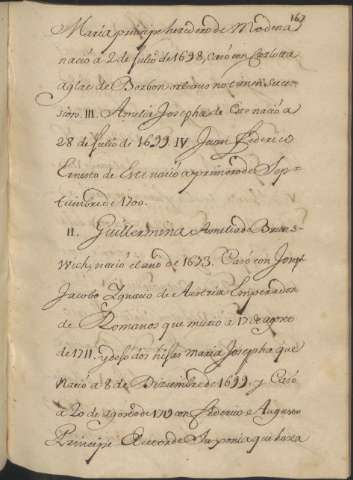 167
Maria principe heredero de Modena
nació a 2 de Julio de 1698, Casó con Carlotta
aglae de Borbon
sion. III. Amelia Josepha de Este nació a
28 de Julio de 1699 IV Juan Federico
Ernesto de Este nació a primero de Sep-
tiembre de 1700.
II. Guillermina Amelia de Bruns-
Wich, nació el año de 1673. Caso con Joseph
Jacobo Ignacio de Austria Emperador
de Romanos que murio a 17 de agosto
de 1711. y dejó dos hijas maria Josepha que
Nació a 8 de Diziembre de 1699. y Casó
a 20 de agosto de 1719 con Federico Augusto
Principe de Saxonia que haxa